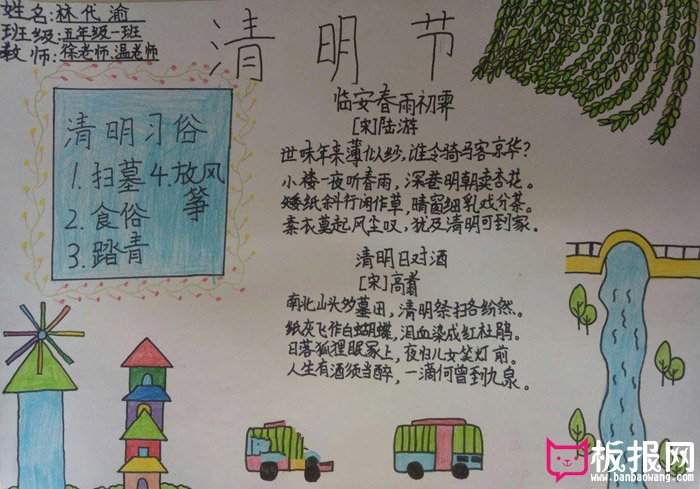 姓名:林代渝
班级:五年级一班
教师:徐老师.温老师
清明节
清明习俗
1.扫墓 4.放风筝
2.食俗
3.踏青
临安春雨初霁
[宋]陆游
世味年来薄似纱,谁令骑马客京华?
小楼一夜听春雨,深巷明朝卖杏花。
矮纸斜行闲作草,晴窗细乳戏分茶。
素衣莫起风尘叹,犹及清明可到家。
清明日对酒
[宋]高翥
南北山头多墓田,清明祭扫各纷然。
纸灰飞作白蝴蝶,泪血染成红杜鹃。
日落狐狸眠冢上,夜归儿女笑灯前。
人生有酒须当醉,一滴何曾到九泉。
板报网
www.banbaowang.com